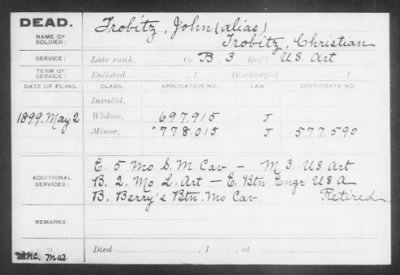 DEAD.
NAME OF SOLDIER:
Trobitz, John (alias)
Trobitz, Christian
SERVICE:
Late rank, Co. B 3 Reg't U.S. Art
TERM OF SERVICE:
Enlisted , 1 Discharged 1
DATE OF FILING. CLASS. APPLICATION NO. LAW. CERTIFICATE NO.
Invalid,
1899. May 2 Widow, 697.915 J
Minor, 778.015 J 577.590
ADDITIONAL SERVICES:
E. 5 Mo S. M Cav - M 3. US Art
B. 2. Mo L. Art - E. Btn Engr U S A
B. Berry's Btn. Mo Cav. Retired
REMARKS:
Died , 1 , at